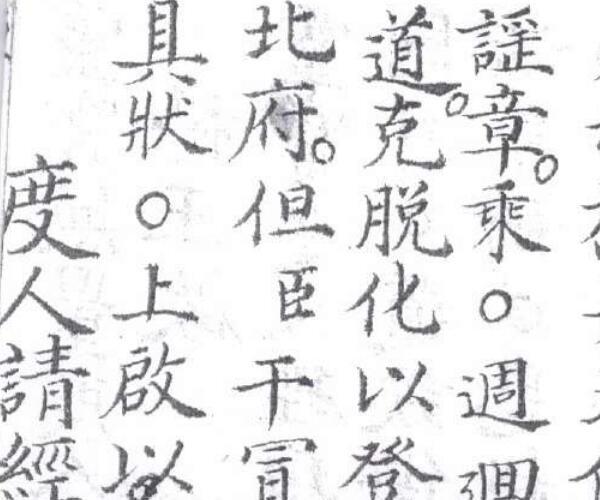 謡章。乘○週迴
道。克脱化以登
北府。但臣干冒
具狀○上啟以
度人請經